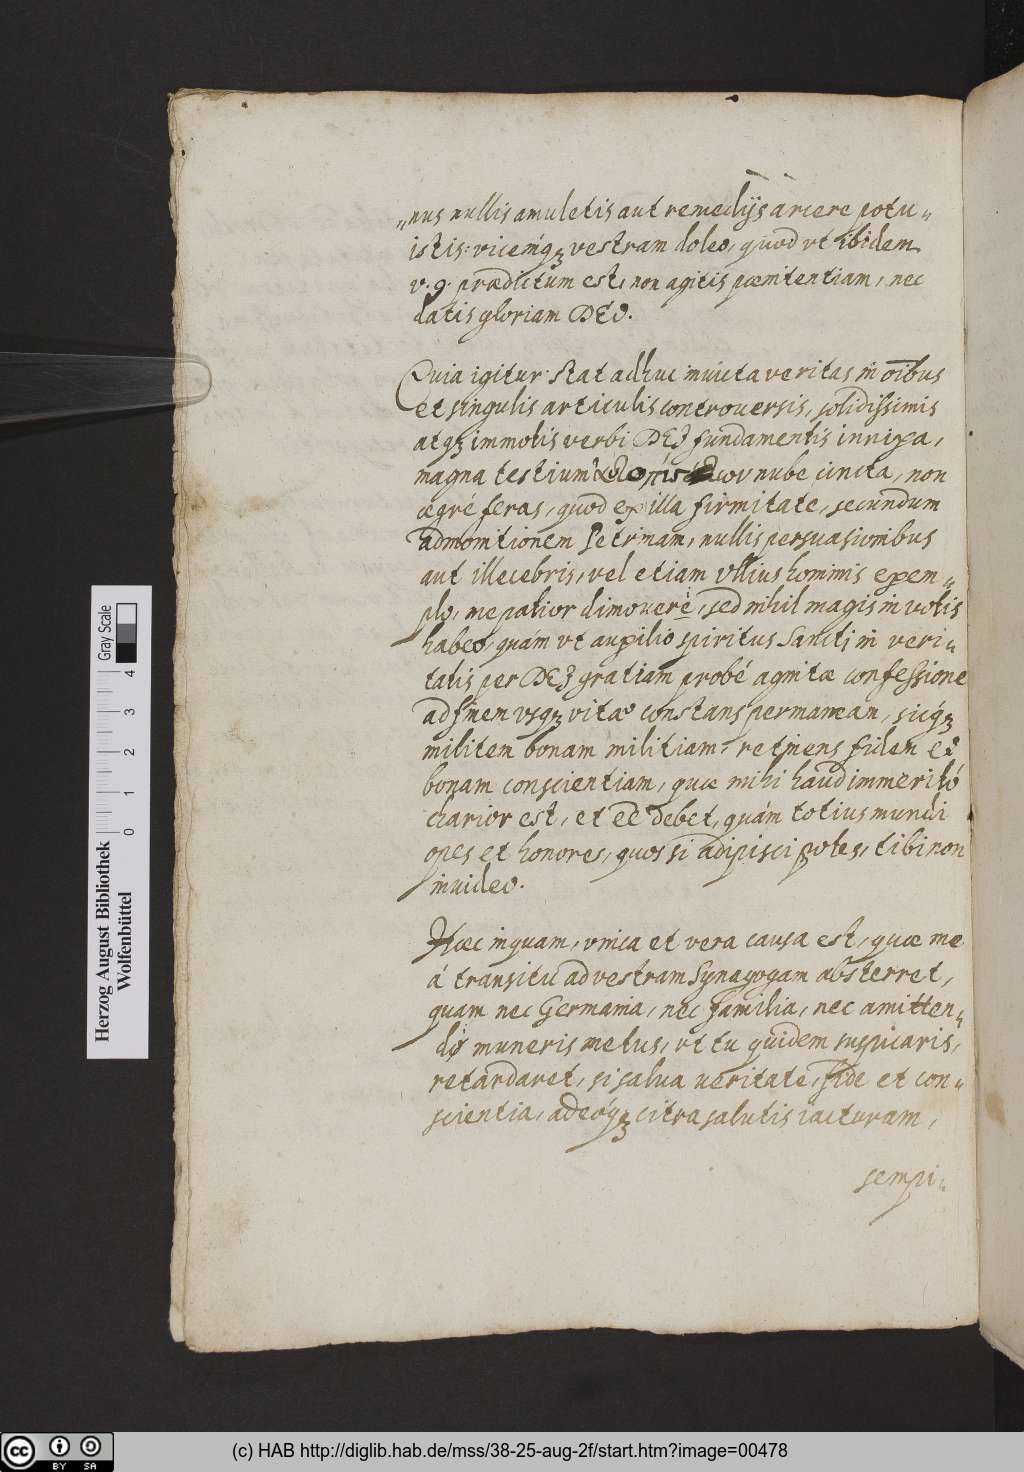 „nus nullis amuletis aut remedijs arcere potu„
istis: vicemq́ꝫ vestram doleo, quod vt ibidem
v. 9. prædictum est, non agitis pœnitentiam, nec
datis gloriam DEO.
Quia igitur stat adhuc inuicta veritas in oībus
et singulis articulis controuersis, solidissimis
atqꝫ immotis verbi DEI fundamentis innixa,
magna testium nube cincta, non
ægré feras, quod ex illa firmitate, secundum
admonitionem Petrinam, nullis persuasionibus
aut illecebris, vel etiam vllius hominis exem„
plo, me patior dimouere, sed nihil magis in votis
habeo, quam vt auxilio spiritus Sancti in veri„
tatis per DEI gratiam probé agnitæ confessione
ad finem vsqꝫ vitæ constans permaneam, sicq́ꝫ
militem bonam militiam, retinens fidem et
bonam conscientiam, quæ mihi haud immeritó
charior est, et eē debet, quám totius mundi
opes et honores, quos si adipisci potes, tibi non
inuideo.
Hæc inquam, vnica et vera causa est, quæ me
á transitu ad vestram Synagogam absterret,
quam nec Germania, nec familia, nec amitten„
di muneris metus, vt tu quidem suspicaris,
retardaret, si salua veritate, fide et con„
scientia, adeóqꝫ citra salutis iacturam,
sempi„
Herzog August Bibliothek
Wolfenbüttel
Gray Scale
0 1 2 3 4
(c) HAB http://diglib.hab.de/mss/38-25-aug-2f/start.htm?image=00478
cc BY SA